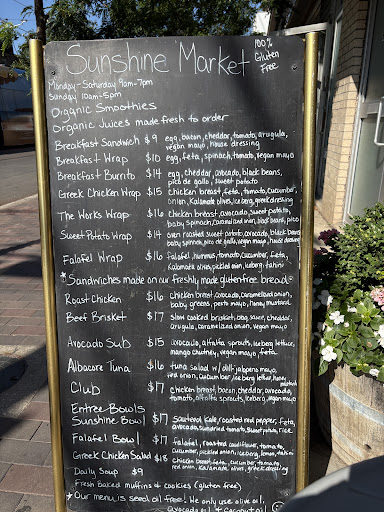 Sunshine Market
100% Gluten Free
Monday-Saturday 9am-7pm
Sunday 10am-5pm
Organic Smoothies
Organic Juices made fresh to order
Breakfast Sandwich $9 egg, bacon, cheddar, tomato, arugula,
vegan mayo, house dressing
Breakfast Wrap $10 egg, feta, spinach, tomato, vegan mayo
Breakfast Burrito $14 egg, cheddar, avocado, black beans,
pico de gallo, sweet potato
Greek Chicken Wrap $15 chicken breast, feta, tomato, cucumber,
onion, Kalamata olives, iceberg, greek dressing
The Works Wrap $16 chicken breast, avocado, sweet potato,
baby spinach, caramelized onion, black beans, pico
Sweet Potato Wrap $14 oven roasted sweet potato, avocado, black beans
baby spinach, pico de gallo, vegan mayo, house dressing
Falafel Wrap $16 falafel, hummus, tomato, cucumber, feta,
Kalamata olives, pickled onion, iceberg, tahini
*Sandwiches made on our freshly made gluten free bread
Roast Chicken $16 chicken breast, avocado, caramelized onion,
baby greens, pesto mayo, honey mustard
Beef Brisket $17 Slow cooked brisket, bbq sauce, cheddar,
arugula, caramelized onion, vegan mayo
Avocado Sub $15 avocado, alfalfa sprouts, iceberg lettuce,
mango chutney, vegan mayo, feta
Albacore Tuna $16 tuna salad w/ dill-jalapeno mayo,
red onion, cucumber, iceberg letter, honey mustard
Club $17 chicken breast, bacon, cheddar, avocado,
tomato, alfalfa sprouts, iceberg, vegan mayo
Entree-Bowls
Sunshine Bowl $17 Sauteed kale, roasted red pepper, feta,
avocado, sundried tomato, sweet potato, rice
Falafel Bowl $17 falafel, roasted cauliflower, tomato,
cucumber, pickled onion, iceberg, lemon, tahini
Greek Chicken Salad $18 chicken breast, feta, cucumber, tomato,
red onion, Kalamata, olives, greek dressing
Daily Soup $9
Fresh Baked muffins & cookies (gluten free)
*Our menu is seed oil free! We only use olive oil,
avocado oil & coconut oil